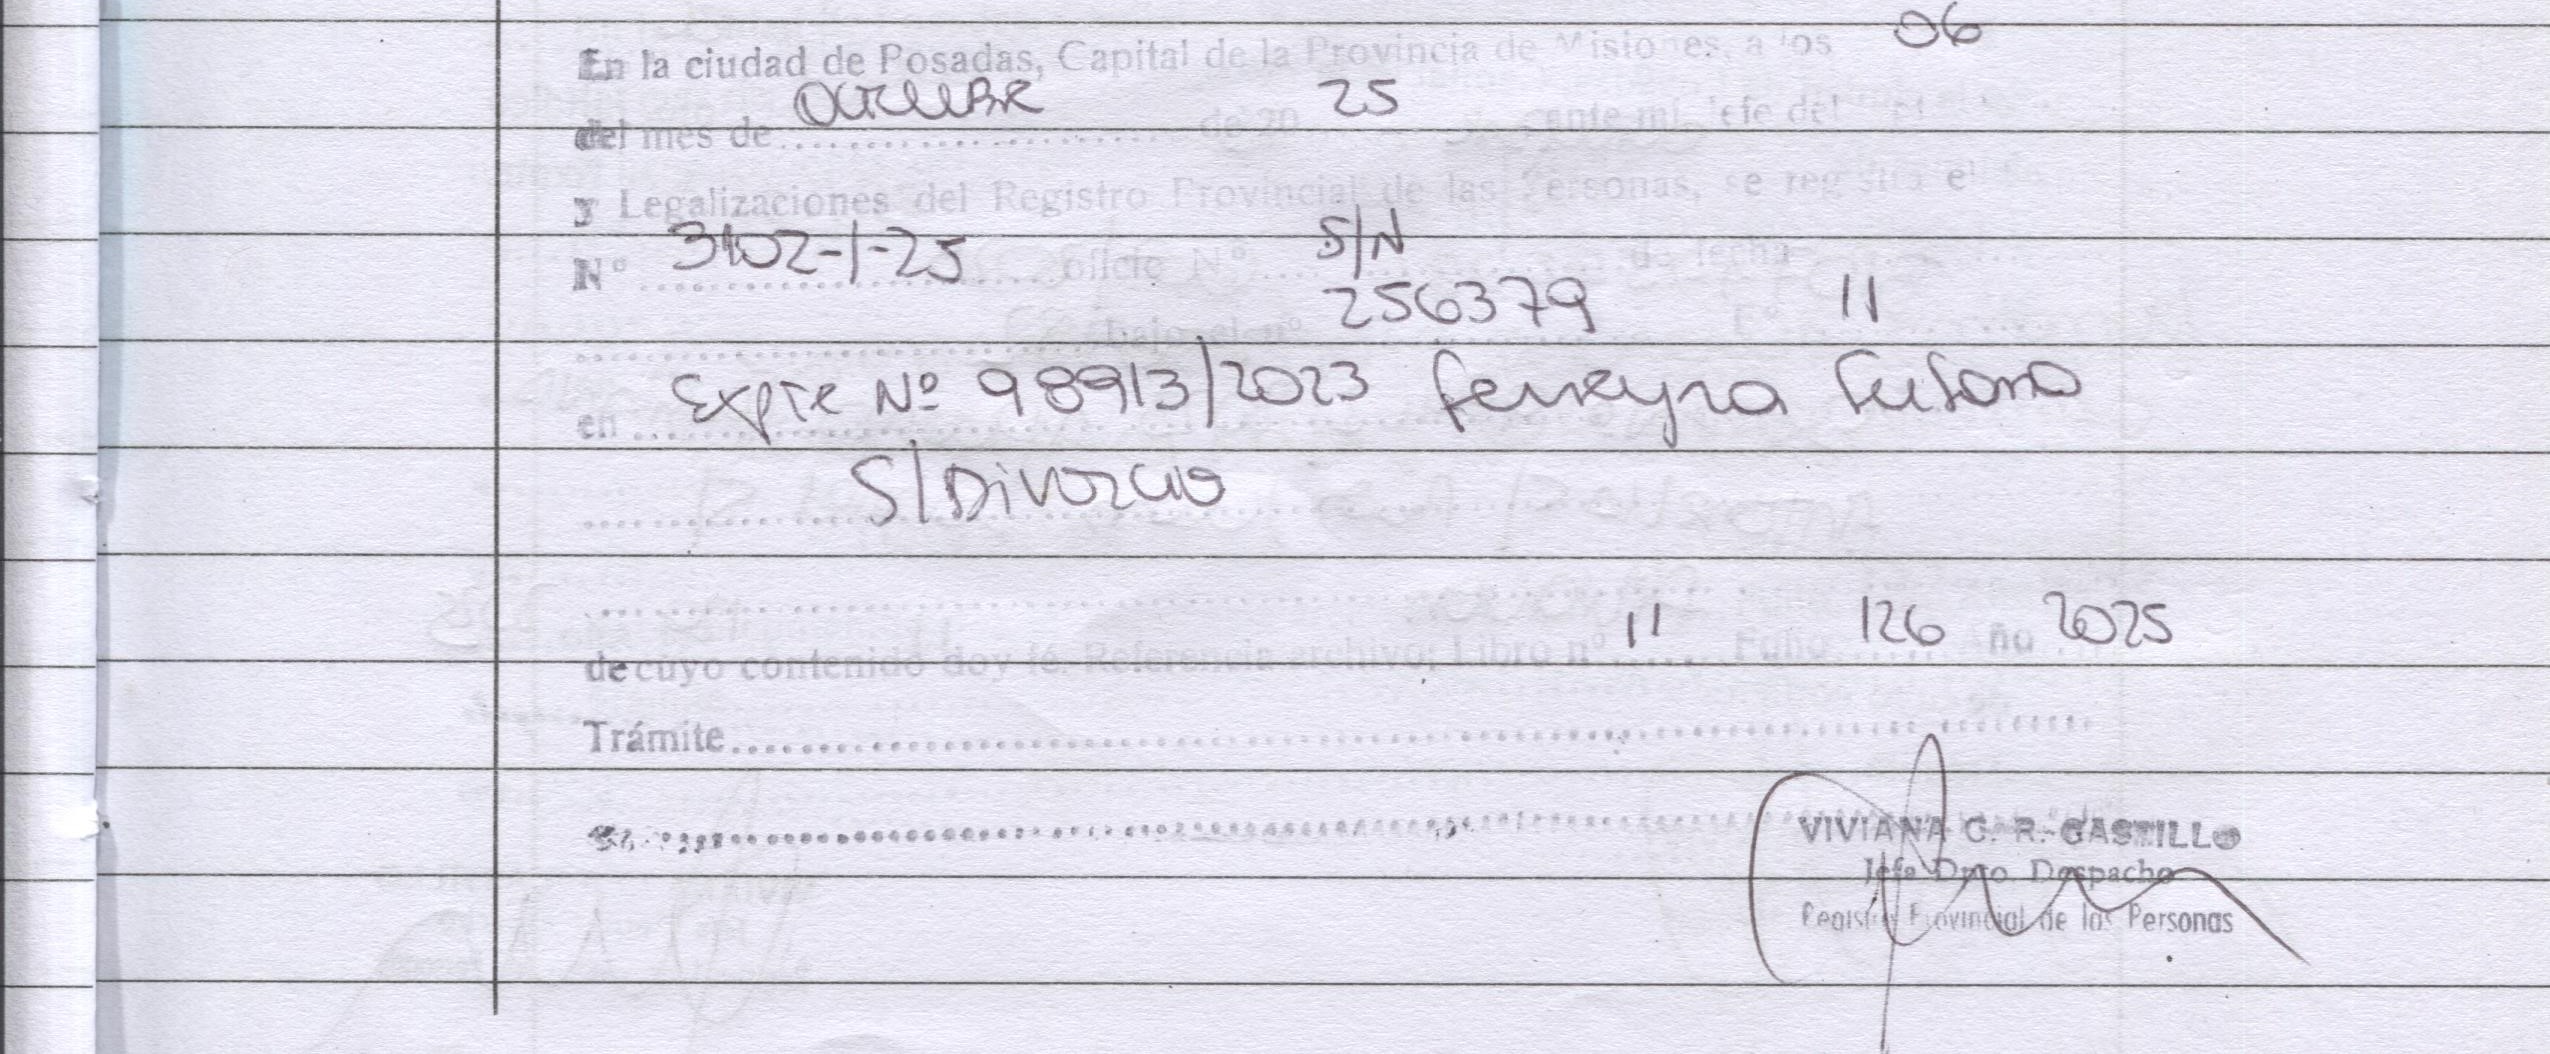 En la ciudad de Posadas, Capital de la Provincia de Misiones, a los 06
del mes de Octubre de 20 25 ante mi, Jefe del
y Legalizaciones del Registro Provincial de las Personas, se registra el
Nº 3102-1-25 oficio Nº S/N de fecha
bajo el nº 256379 Tº 11
en Expte Nº 98913/2023 Ferreyra Susana
S/Divorcio
de cuyo contenido doy fé. Referencia archivo; Libro nº 11 Folio 126 Año 2025
Trámite
VIVIANA C. R. CASTILLO
Jefa Dpto. Despacho
Registro Provincial de las Personas